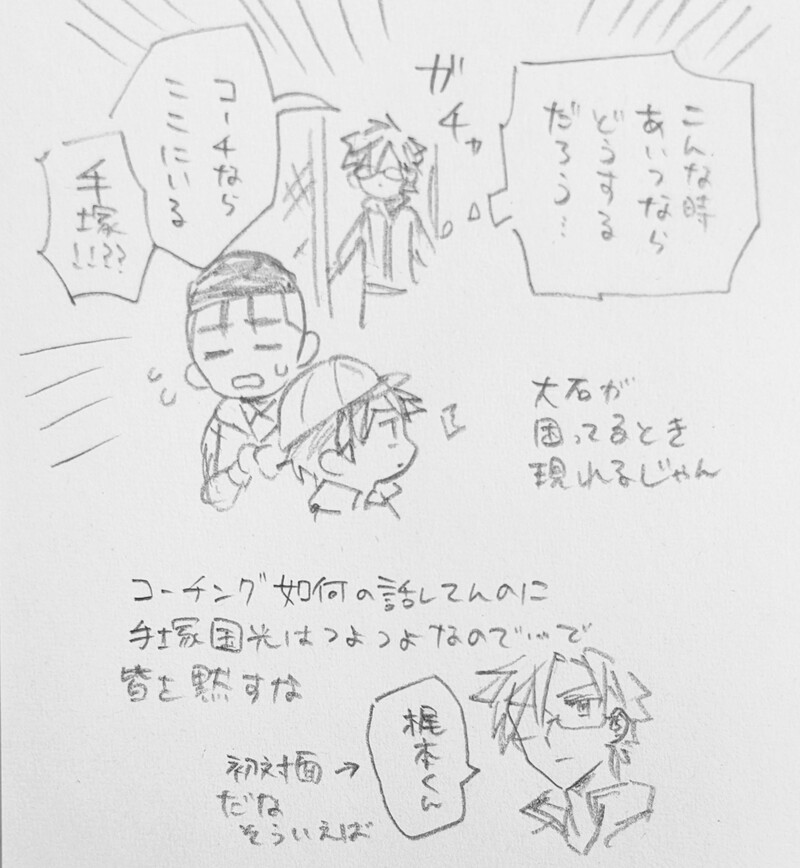 こんな時
あいつなら
どうする
だろう…
ガチャ
コーチなら
ここにいる
手塚!!??
大石が
困ってるとき
現れるじゃん
コーチング如何の話してんのに
手塚国光はつよつよなので…で
皆を黙すな
梶本くん
初対面→
だな
そういえば